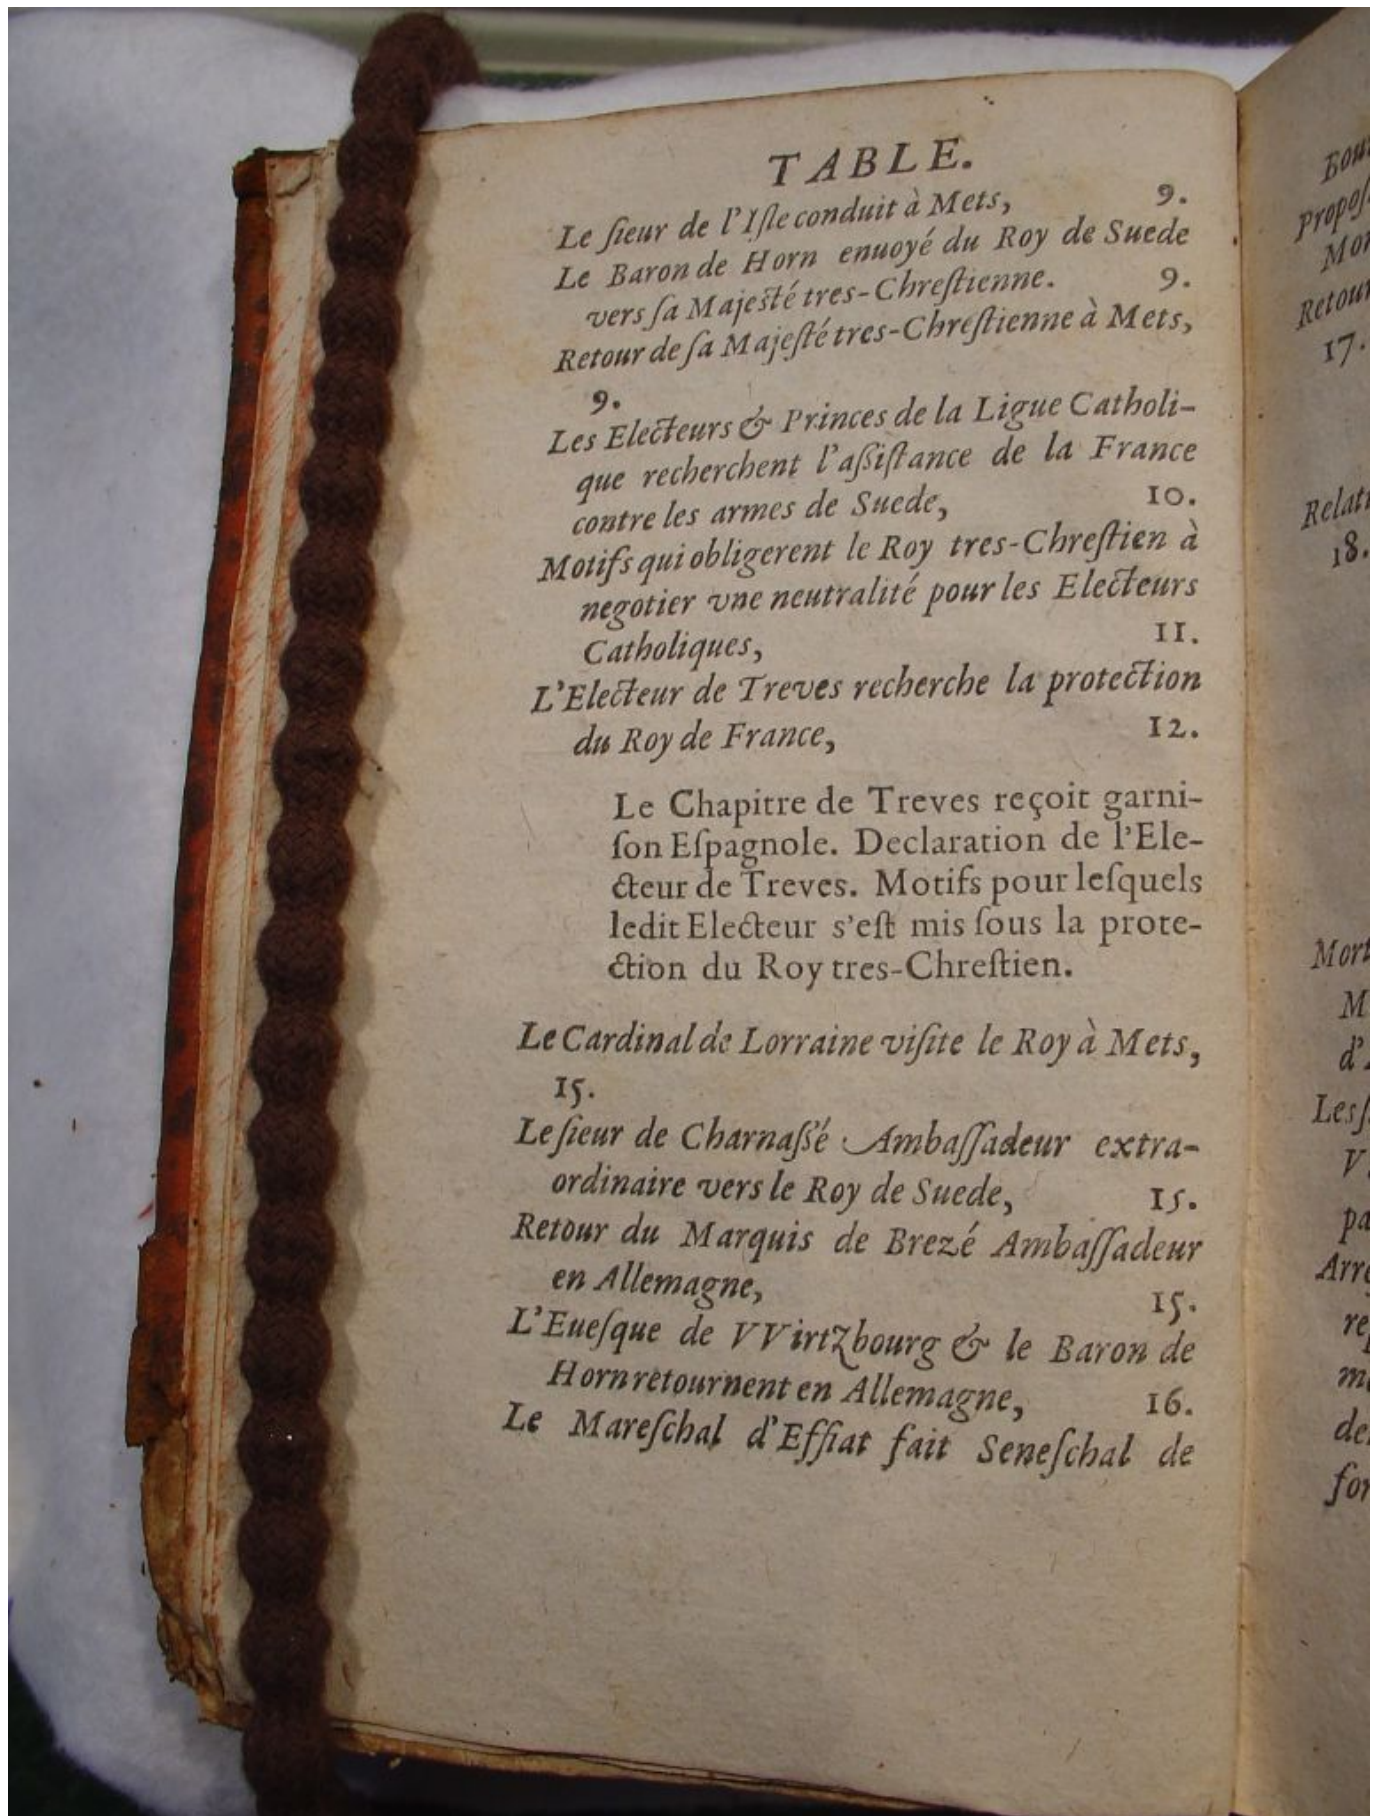 TABLE.
Le ſieur de l'Iſle conduit à Mets, 9.
Le Baron de Horn enuoyé du Roy de Suede
vers ſa Majeſté tres-Chreſtienne. 9.
Retour de ſa Majeſté tres-Chreſtienne à Mets,
9.
Les Electeurs & Princes de la Ligue Catholi-
que recherchent l'aſſiſtance de la France
contre les armes de Suede, 10.
Motifs qui obligerent le Roy tres-Chreſtien à
negotier vne neutralité pour les Electeurs
Catholiques, 11.
L'Electeur de Treves recherche la protection
du Roy de France, 12.
Le Chapitre de Treves reçoit garni-
ſon Eſpagnole. Declaration de l'Ele-
cteur de Treves. Motifs pour leſquels
ledit Electeur s'eſt mis ſous la prote-
ction du Roy tres-Chreſtien.
Le Cardinal de Lorraine viſite le Roy à Mets,
15.
Le ſieur de Charnaſſé Ambaſſadeur extra-
ordinaire vers le Roy de Suede, 15.
Retour du Marquis de Brezé Ambaſſadeur
en Allemagne, 15.
L'Eueſque de VVirtzbourg & le Baron de
Horn retournent en Allemagne, 16.
Le Mareſchal d'Effiat fait Seneſchal de
Retour
17.
18.
Mort
M
d'
V
pa
re